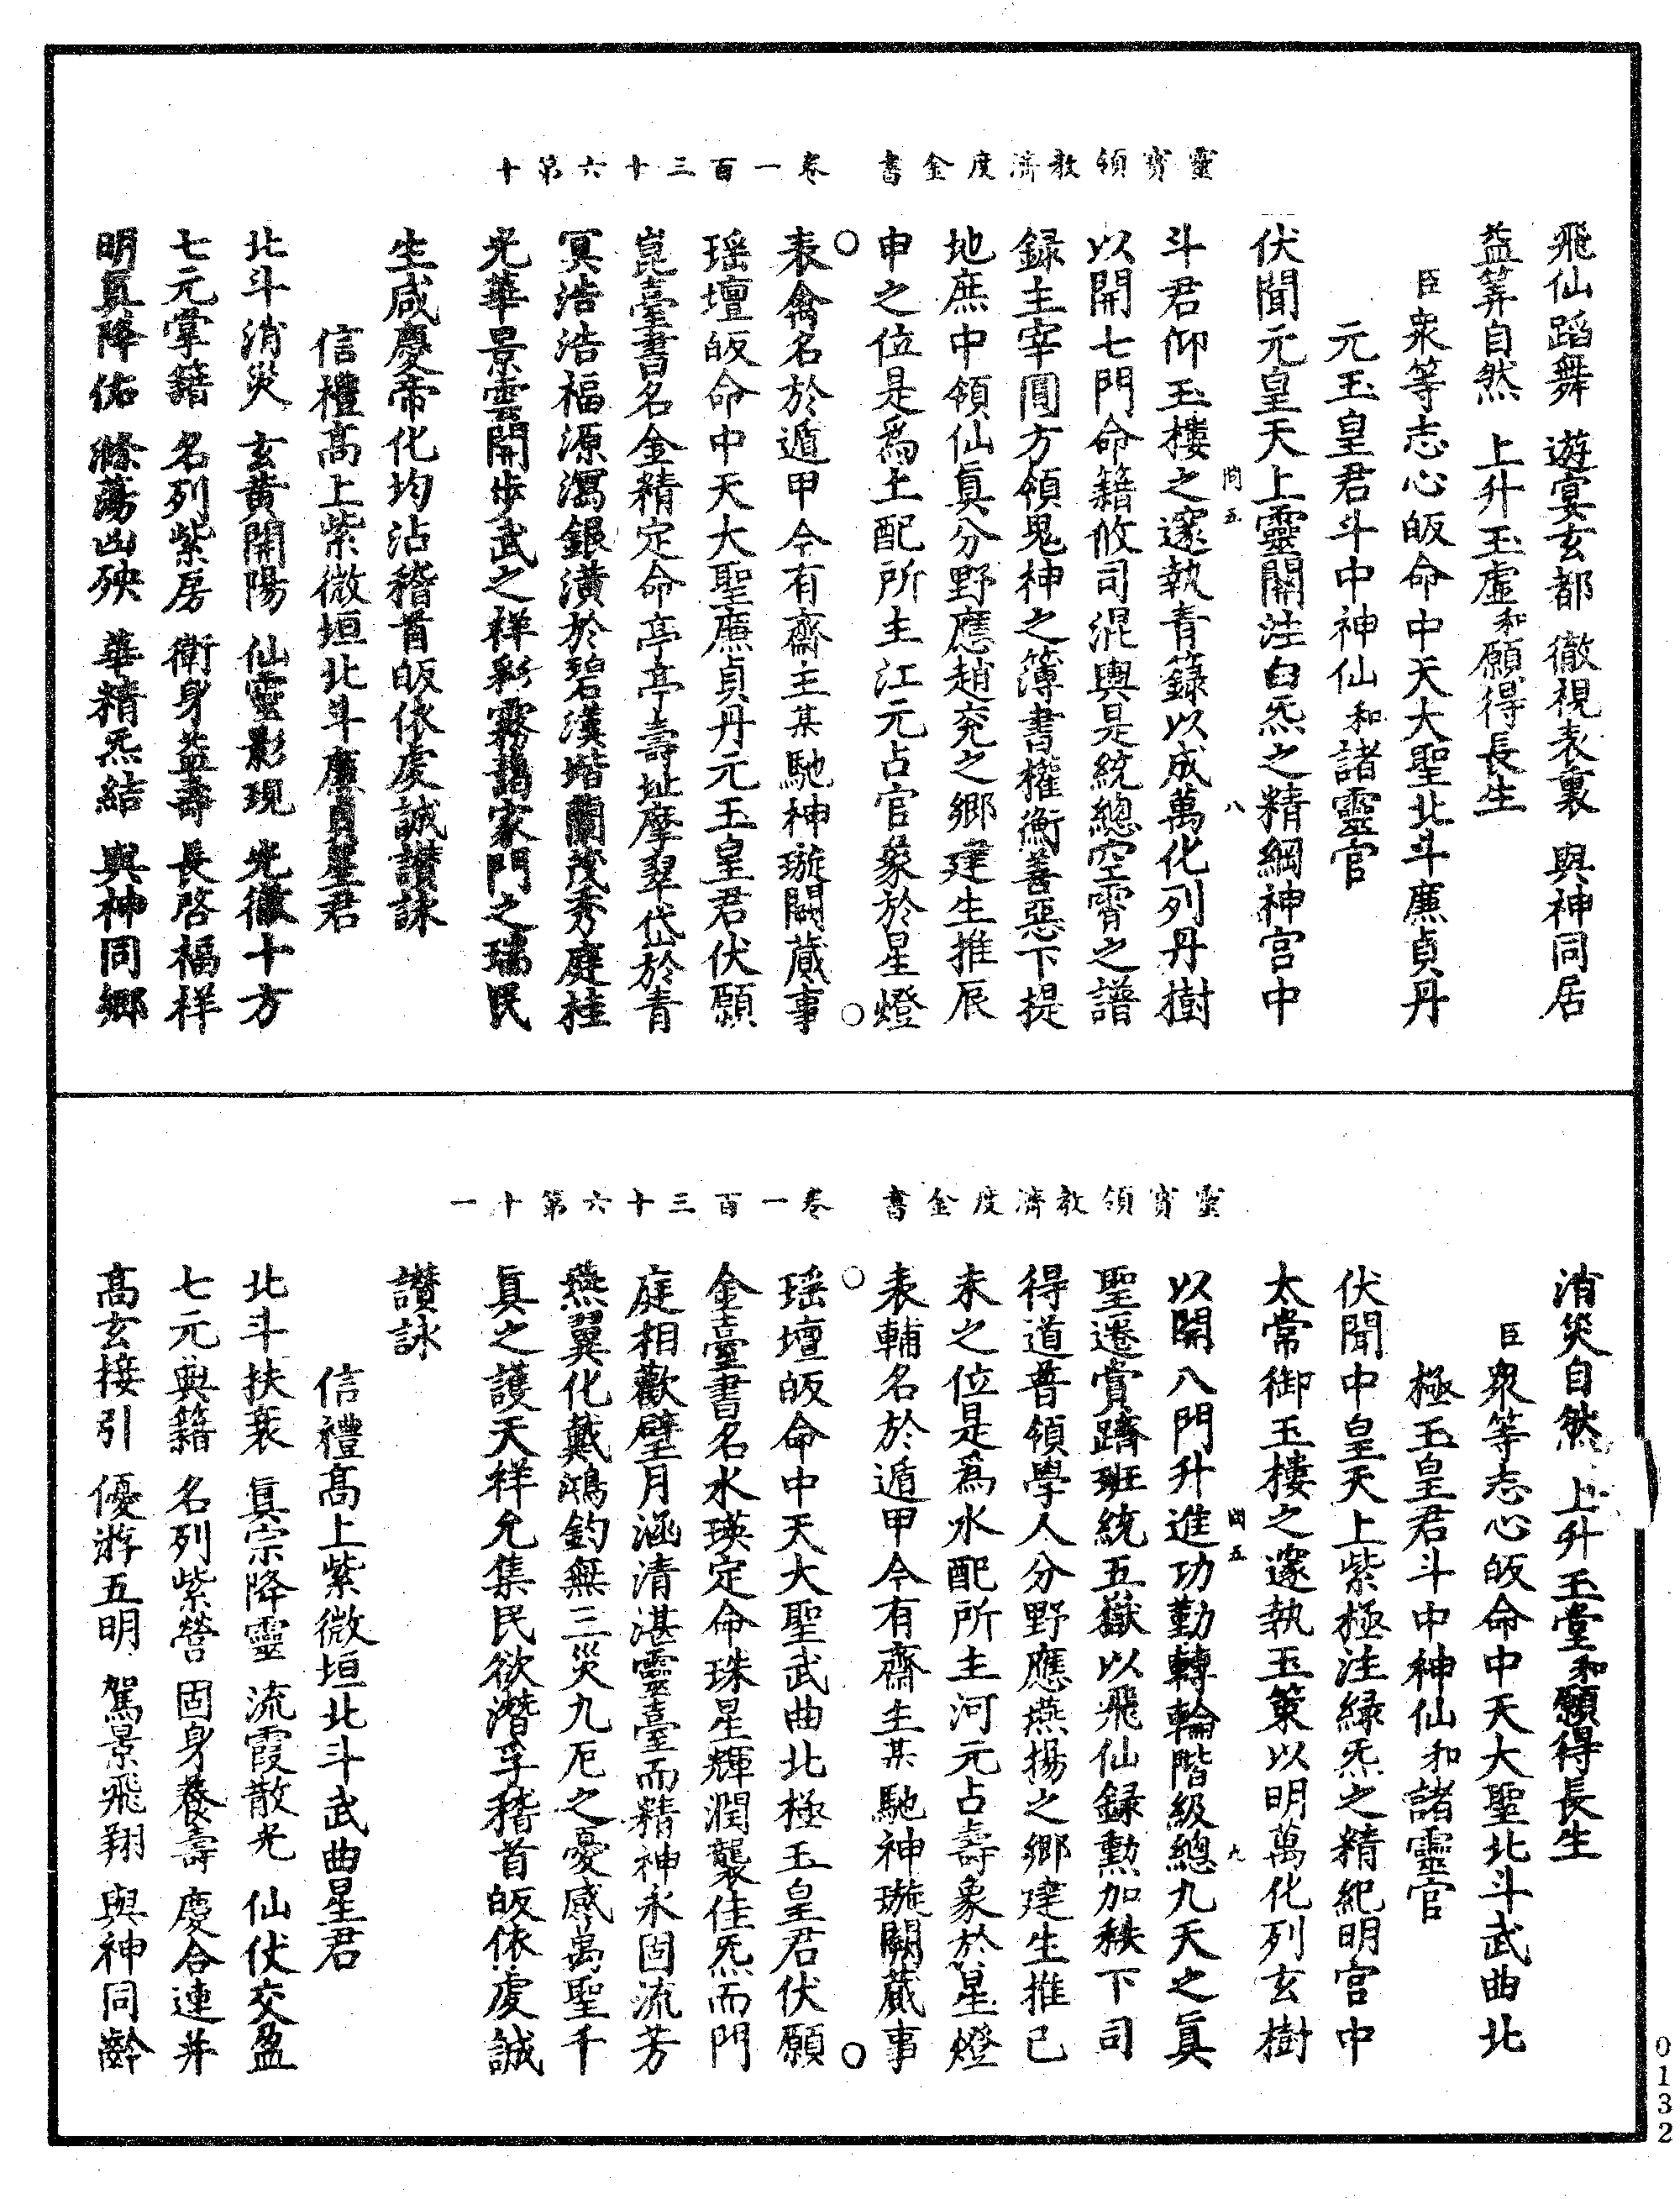 靈寶領教濟度金書　卷一百三十六第十
飛仙蹈舞　遊宴玄都　徹視表裏　與神同居
益筭自然　上升玉虛和願得長生
臣衆等志心皈命中天大聖北斗廉貞丹
元玉皇君斗中神仙和諸靈官
伏聞元皇天上靈關注白炁之精綱神宮中
斗君仰玉樓之邃執青籙以成萬化列丹樹
以開七門命籍攸司混輿是統總空霄之譜
錄主宰圓方領鬼神之簿書權衡善惡下提
地庶中領仙真分野應趙兖之鄉建生推辰
申之位是爲土配所主江元占官象於星燈
表禽名於遁甲今有齋主某馳神璇闕蕆事
瑶壇皈命中天大聖廉貞丹元玉皇君伏願
崑臺書名金精定命亭亭壽址摩翠岱於青
冥浩浩福源瀉銀潢於碧漢堦蘭茂秀庭桂
光華景雲開步武之祥彩霧藹家門之瑞民
生咸慶帝化均沾稽首皈依虔誠讃詠
信禮高上紫微垣北斗廉貞星君
北斗消災　玄黄開陽　仙靈影現　光徹十方
七元掌籍　名列紫房　衛身益壽　長啓福祥
明真降佑　滌蕩凶殃　華精炁結　與神同鄉
閏五　八
靈寶領教濟度金書　卷一百三十六第十一
消災自然　上升玉堂和願得長生
臣衆等志心皈命中天大聖北斗武曲北
極玉皇君斗中神仙和諸靈官
伏聞中皇天上紫極注緑炁之精紀明宫中
太常御玉樓之邃執玉策以明萬化列玄樹
以開八門升進功勤轉輪階級總九天之真
聖遷賞躋班統五嶽以飛仙録勲加秩下司
得道普領學人分野應燕揚之鄉建生推已
未之位是爲水配所主河元占壽象於星燈
表輔名於遁甲今有齋主某馳神璇闕蕆事
瑶壇皈命中天大聖武曲北極玉皇君伏願
金臺書名水瑛定命珠星輝潤襲佳炁而門
庭相歡璧月涵清湛靈臺而精神永固流芳
燕翼化戴鴻鈞無三災九厄之憂感萬聖千
真之護天祥允集民欲潛孚稽首皈依虔誠
讃詠
信禮高上紫微垣北斗武曲星君
北斗扶衰　真宗降靈　流霞散光　仙伏交盈
七元典籍　名列紫營　固身養壽　慶合連并
高玄接引　優游五明　駕景飛翔　與神同齡
閏五　九
0132